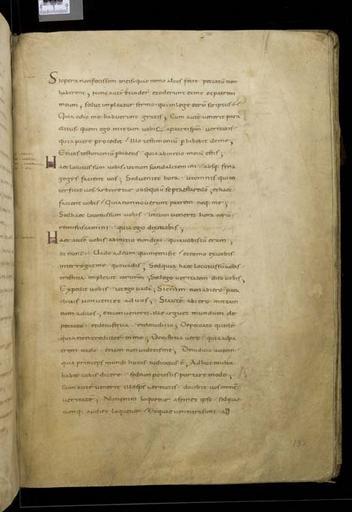 Si opera non fecissem in eis quae nemo alius fecit peccatū non
haberent; Nunc autē & viderunt & oderunt & me & patrem
meum; Sed ut impleatur sermo qui in lege eorū scriptus ē
Quia odio me habuerunt gratis; Cum autē venerit para
clitus quem ego mittam vobis a patre spm veritatis
qui a patre procedit; Ille testimonium perhibebit de me;
Et vos testimonium perhibetis quia ab initio mecum estis;
Haec locutus sum vobis ut non scandalizemini
gogis facient vos; Sed venit hora ut omnis qui in
terficit vos arbitretur obsequiū se praestare dō; & haec
facient vobis Quia non noverunt patrem neq; me;
Sed haec locutus sum vobis ut cum venerit hora eorū
reminiscamini quia ego dixi vobis;
Haec autē vobis ab initio non dixi quia vobiscū eram;
et nunc vado ad eum qui me misit & nemo ex vobis
interrogat me quo vadis; Sed quia haec locutus sū vobis
tristitia implevit cor vrm; Sed ego veritatem dico vobis
Expedit vobis ut ego vadā; Si enim non abiero para
clitus non veniet ad vos; Si autē abiero mittam
eum ad vos; et cum venerit ille arguet mundum de
peccato & de iustitia & de iudicio; De peccato quidē
quia non credunt in me; De iustitia vero quia ad pa
trem vado & iam non videbitis me; De iudicio autem
quia princeps mundi huius iudicatus ē; Adhuc multa
habeo vobis dicere sed non potestis portare modo;
Cum autē venerit ille sps veritatis docebit vos omnem
veritatē; Non enim loquetur a semet ipso sed quae
cumq; audiet loquetur & quae ventura sunt ad